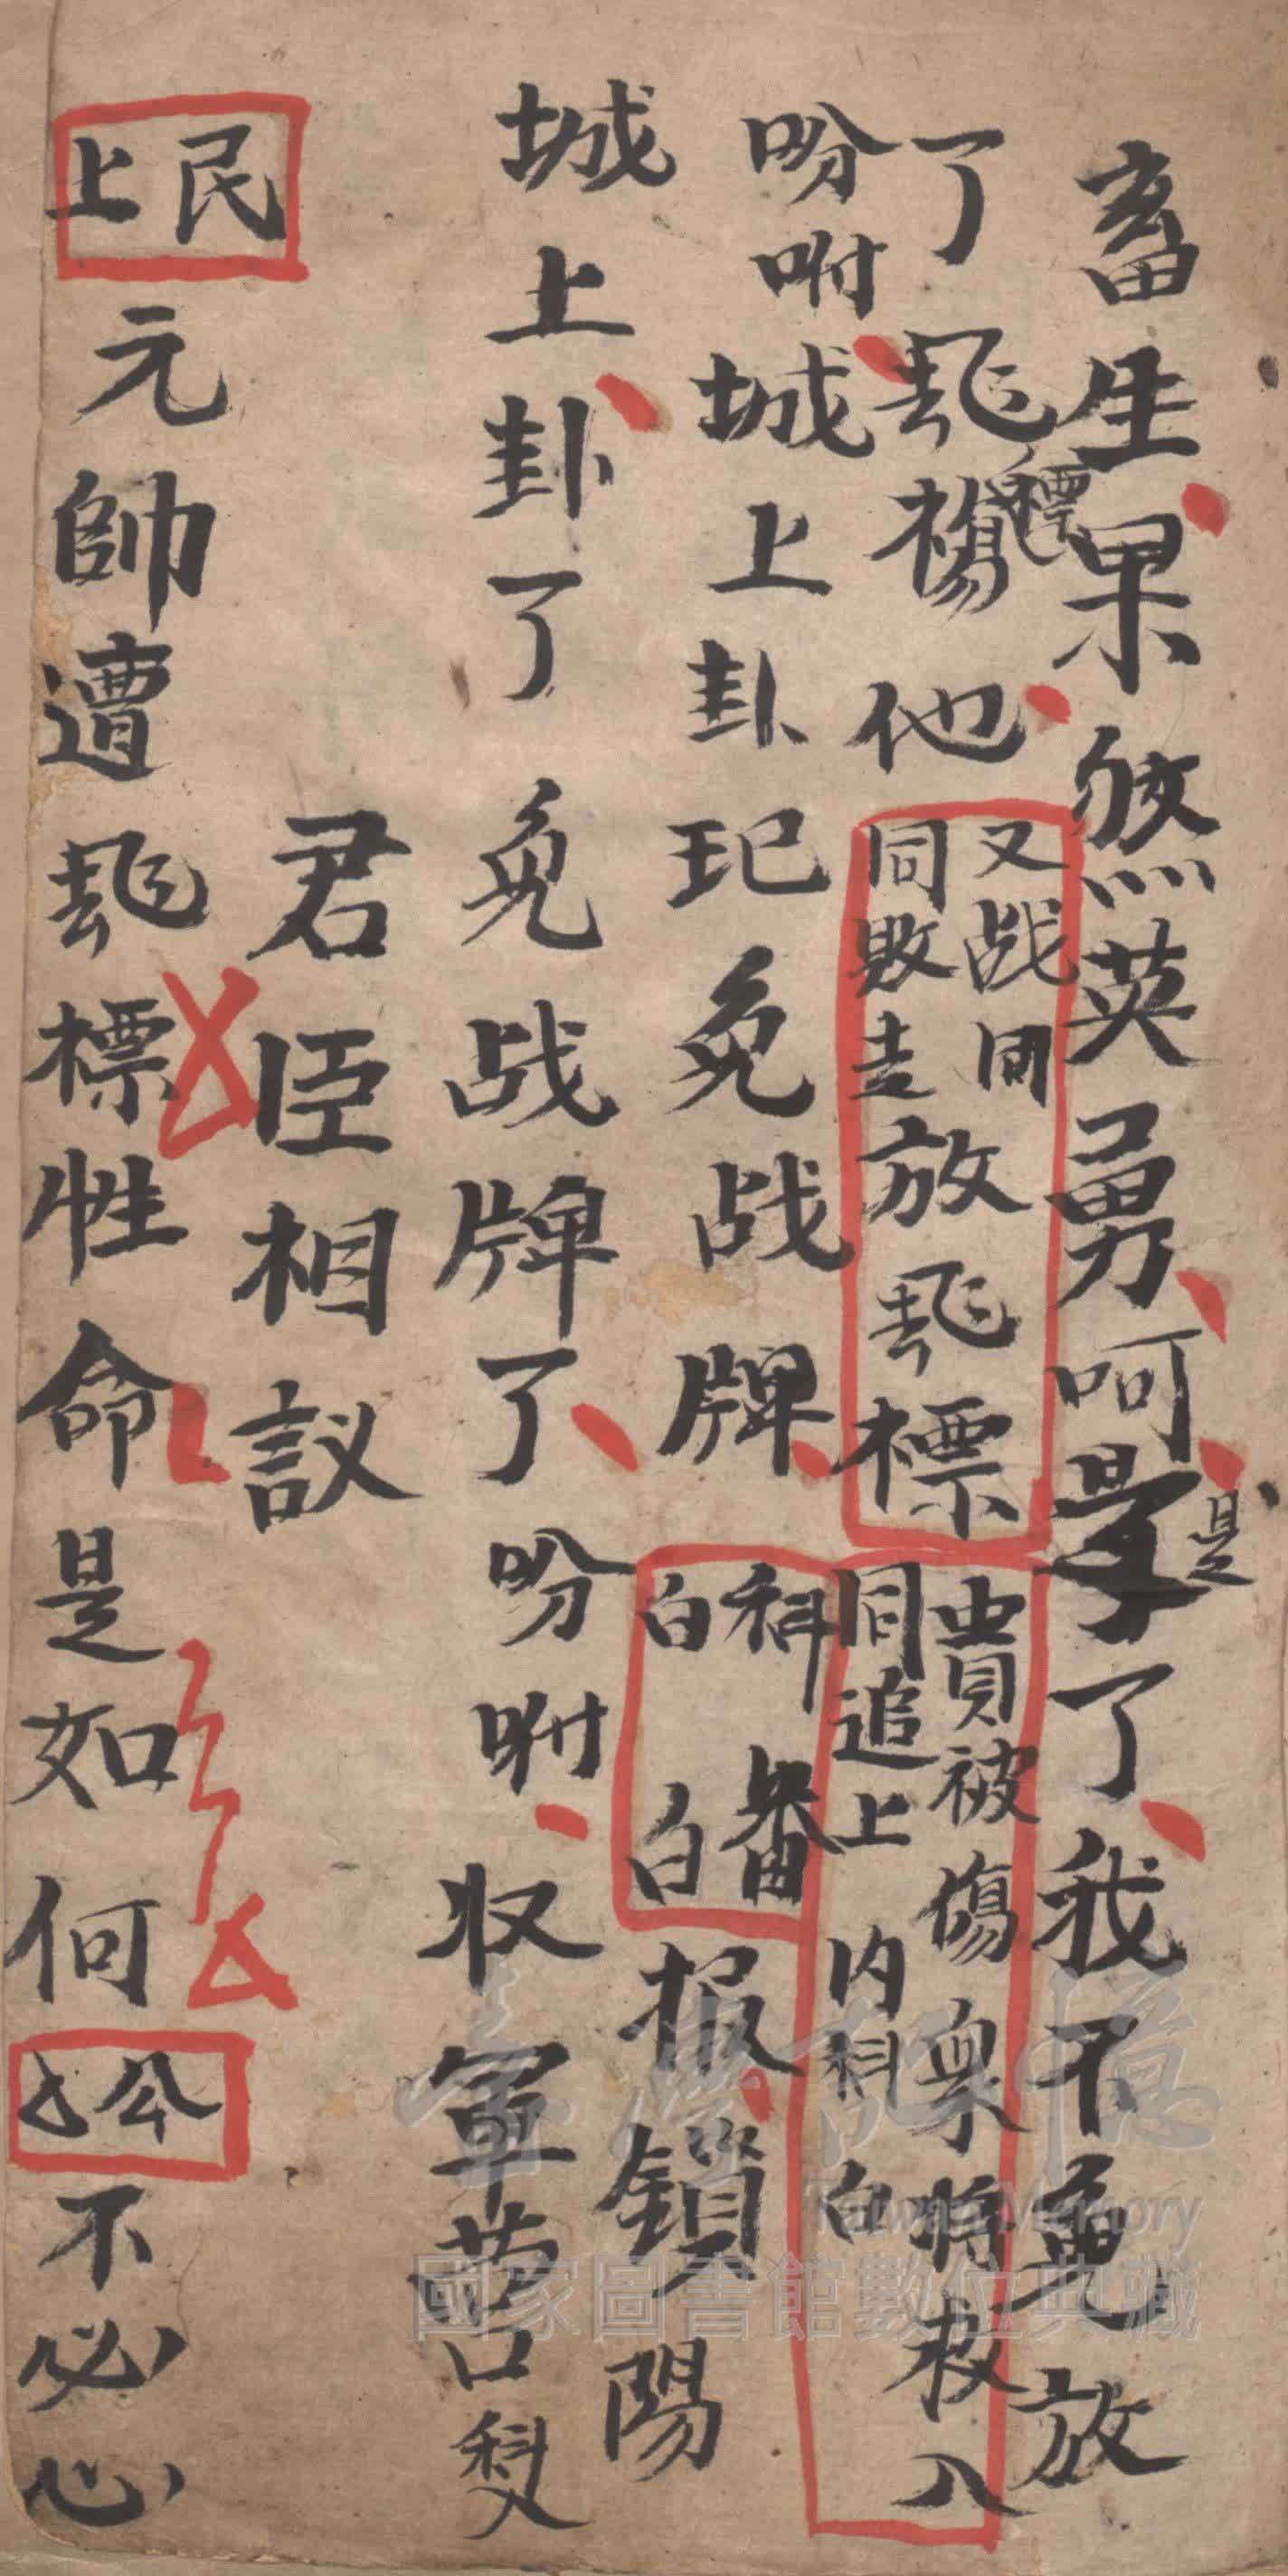 畜生果然英勇呵是了我不免放
了飛標傷他 又战同同敗走放飛標 賣被傷衆將救入同追上 内科白
吩咐城上卦玘免战牌 科白 番白 报鎖陽
城上卦了免战牌了吩咐收軍营口科入
君臣相議
民上 元帥遭飛標性命是如何 公上 不必心
國家圖書館數位典藏
Taiwan Memory
臺灣記憶